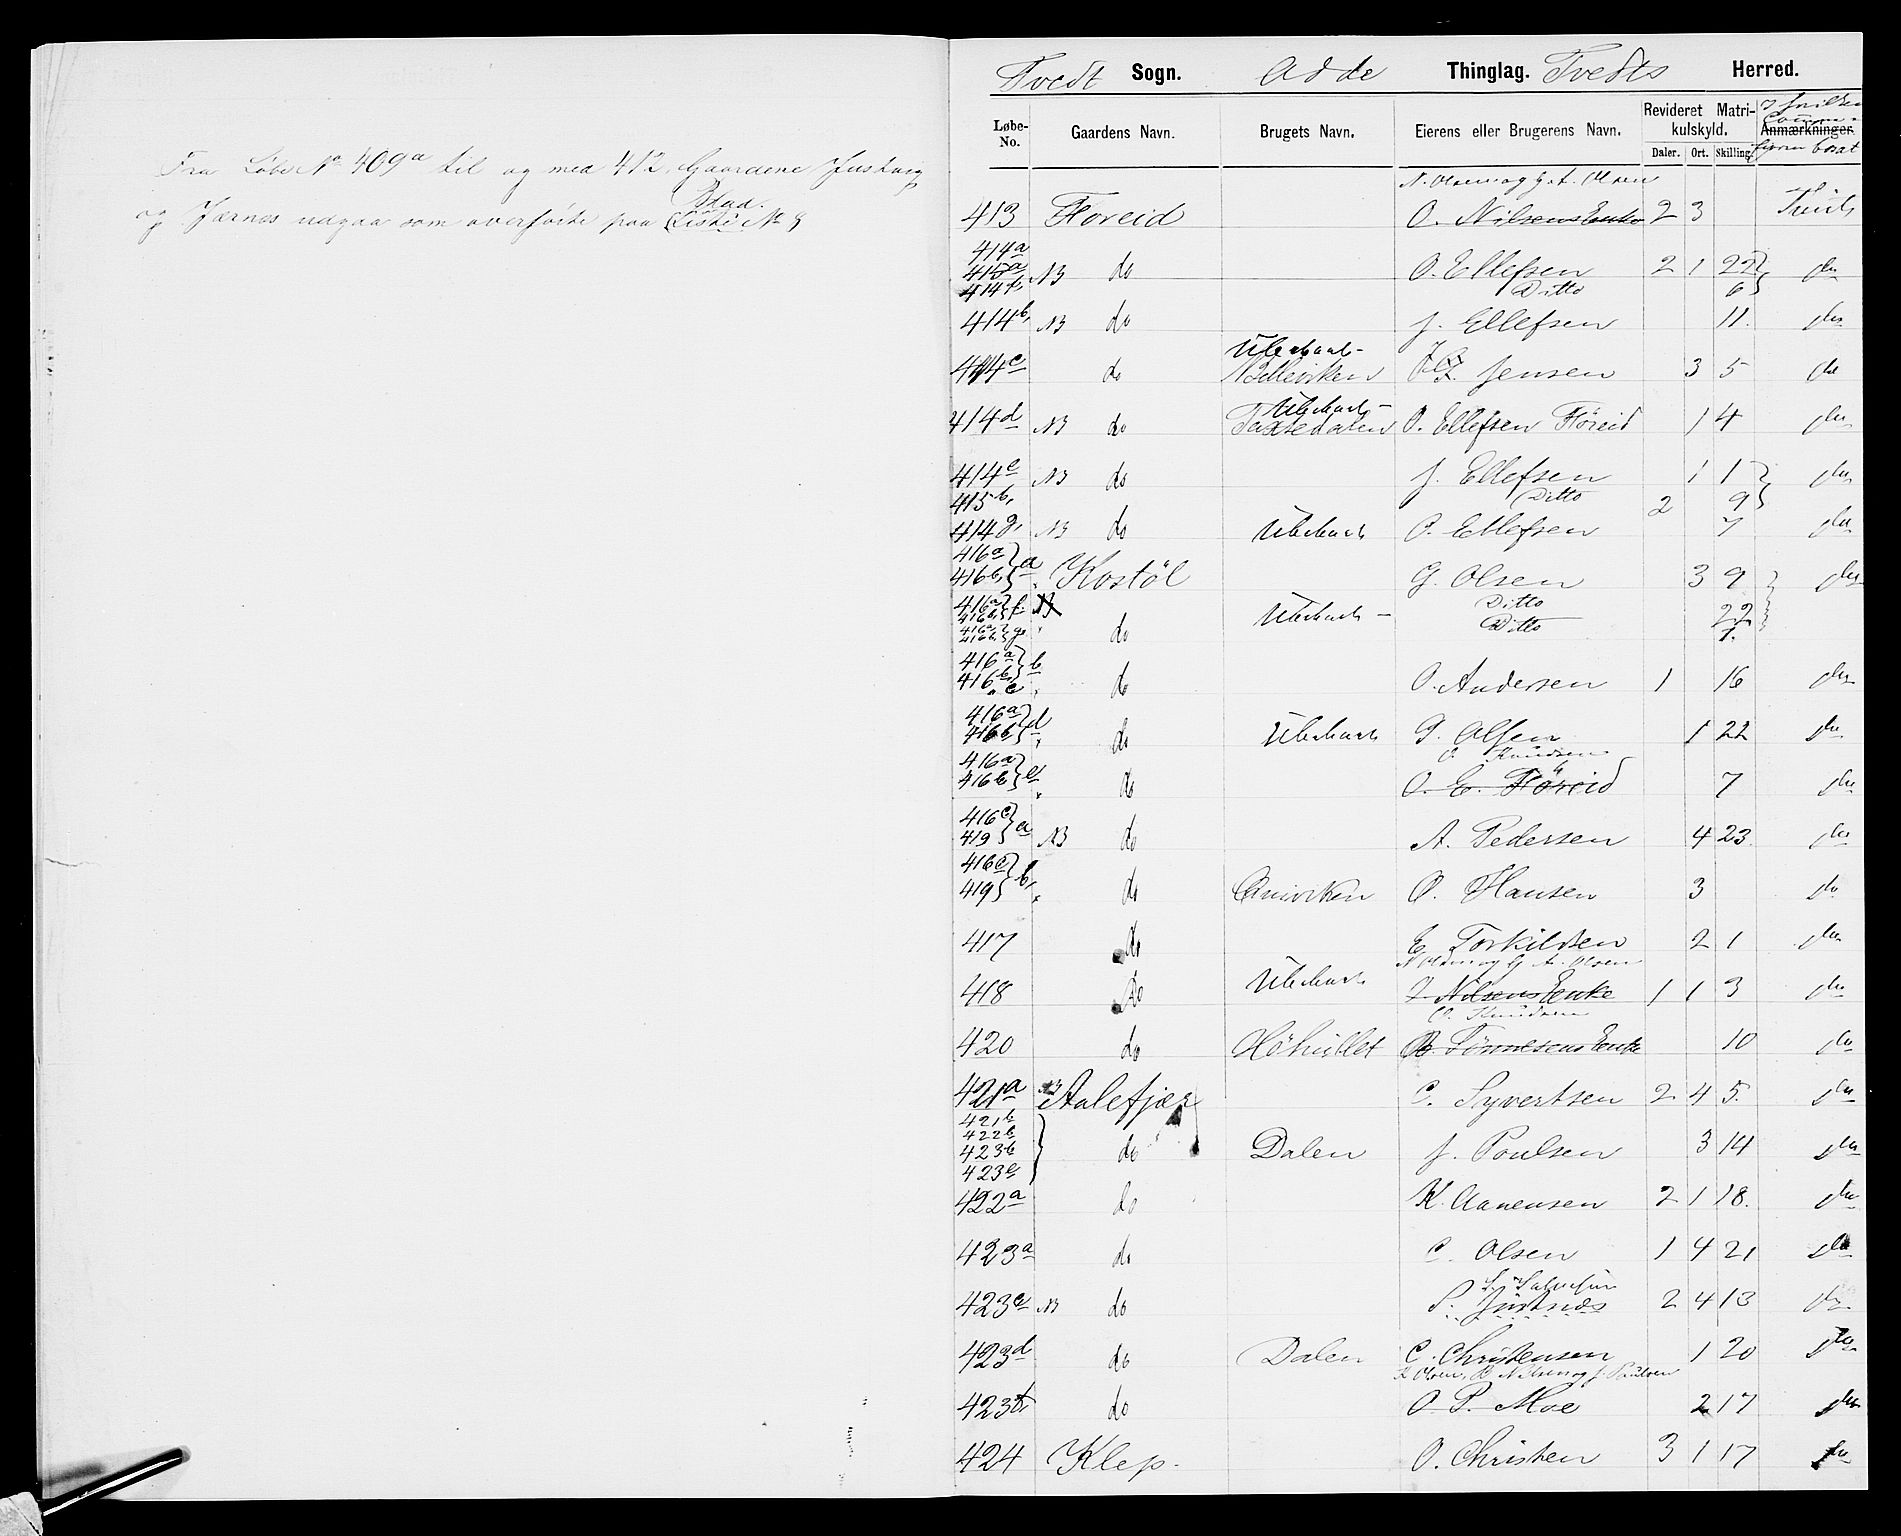 Fra Løbe No 409a til og med 412. Gaardene Justvig
Blad.
og Jærnes udgaa som overførte paa Liste No 8
Tvedt Sogn. Odde Thinglag. Tvedts Herred.
Løbe-No. Gaardens Navn. Brugets Navn. Eierens eller Brugerens Navn. Revideret Matrikulskyld. Anmærkninger.
Daler. Ort. Skilling.
N. Olsen og G. A. Olsen
413 Floreid O. Nilsens Enke 2 3 Tveit
414a 415a NB do O. Ellefsen 2 1 22 do
414f, Ditto 6
414b, NB do J. Ellefsen 11. do
Ubeboet
414c do Belleviken Jensen 3 5 do
Ubeboet
414d NB do O. Ellefsen Flöreid 1 4 do
414e NB do J. Ellefsen 1 1 do
415b, Ditto 2 9
414g, NB do Ubeboet O. Ellefsen 7 do
416a 416b, a Kostöl G. Olsen 3 9 do
416a 416b, f. Ubeboet Ditto 22
416a, 416b, g. do Ditto 1.
416a 416b, c b do O. Andersen 1 16 do
416a 416b d do Ubeboet G. Olsen 1 22 do
O. Knudsen
416a 416b e do O. E. Flöreid 7 do
416c 419 a NB do A. Pedersen 4 23. do
416c 419 b, do O. Hansen 3 do
417 do E Torkildsen 2 1 do
N Olsen og G. A. Olsen
418 do Ubeboet Nilsens Enke 1 1 3 do
O. Knudsen
420 do Höhullet Tönnesens Enke 10 do
421a NB Aalefjær C. Syvertsen 2 4 5. do
421b 422b 423b 423c do Dalen J. Poulsen 3 14 do
422a do K. Aanensen 2 1 18. do
423a do C. Olsen 1 4 21 do
423e NB do S. 2 4 13 do
423d do Dalen C. Christensen 1 20 do
K Olsen, B Nilsen og J. Paulsen
423f, do O. P. Moe 2 17 do
424 Klep. O. Christen 3 1 17 do